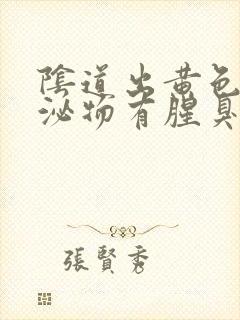 陰道出黃色
泌物有腥臭
張賢秀